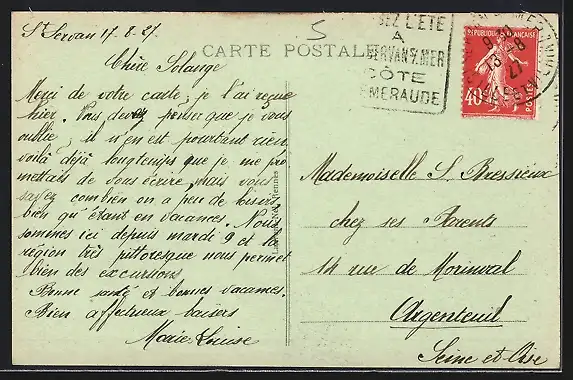 St Servan 17.8.27.
5
CARTE POSTALE
Chère Solange
Merci de votre carte, je l'ai reçue
hier. Vous devez penser que je vous
oublie, il n'en est pourtant rien
voilà déjà longtemps que je me pro
mettais de vous écrire, mais vous
savez combien on a peu de loisirs
bien qu'étant en vacances. Nous
sommes ici depuis mardi 9 et la
région très pittoresque nous permet
bien des excursions
Bonne santé et bonnes vacances.
Bien affectueux baisers
Marie Louise
L'ÉTÉ
A
SERVAN S/ MER
CÔTE
EMERAUDE
REPUBLIQUE FRANÇAISE
40
POSTES
Mademoiselle S. Bressieux
chez ses Parents
14 rue de Morinval
Argenteuil
Seine et Oise